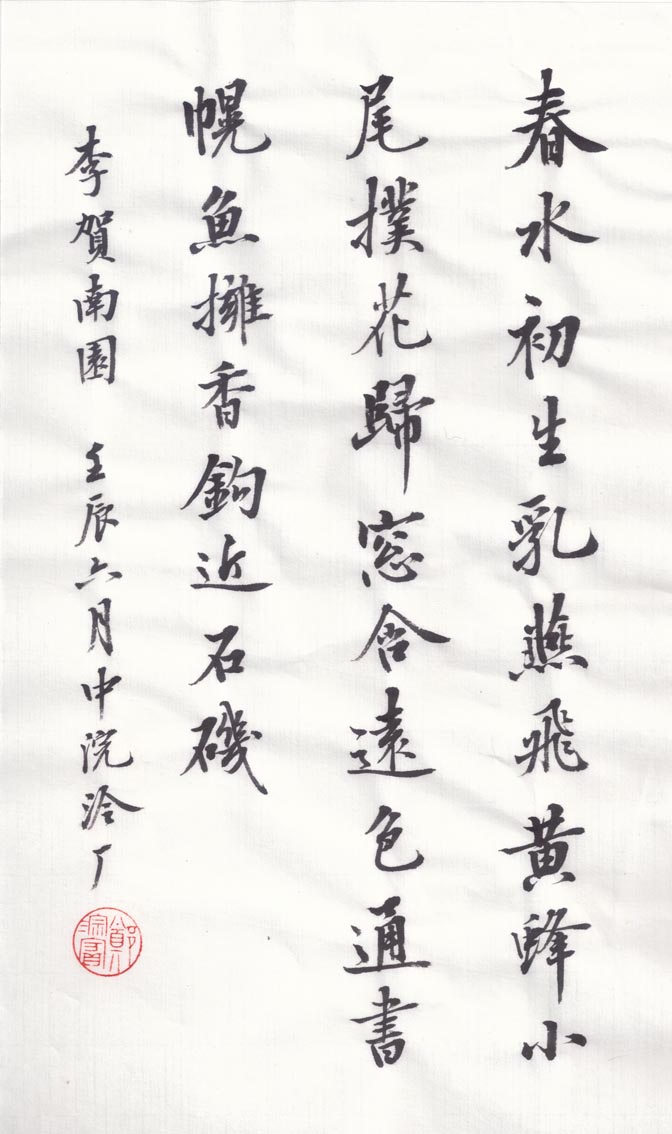 春水初生乳燕飛黃蜂小
尾撲花歸窓含遠色通書
幌魚擁香鉤近石磯
李賀南園 壬辰六月中浣泠厂